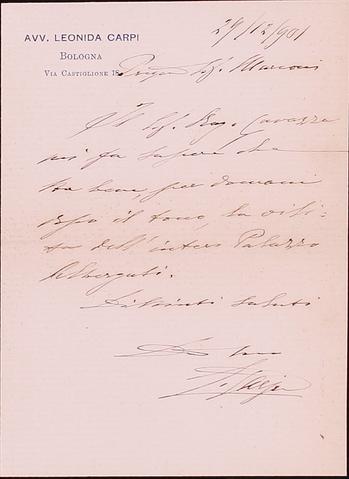 29/12/901
AVV. LEONIDA CARPI
BOLOGNA
VIA CASTIGLIONE 18
Sig. Marconi
Il Sig. Cavazza
mi fa sapere che
sta bene, per domani
dopo il tocco, la visi-
ta dell'intero Palazzo
Albergati.
Distinti saluti
L. Carpi